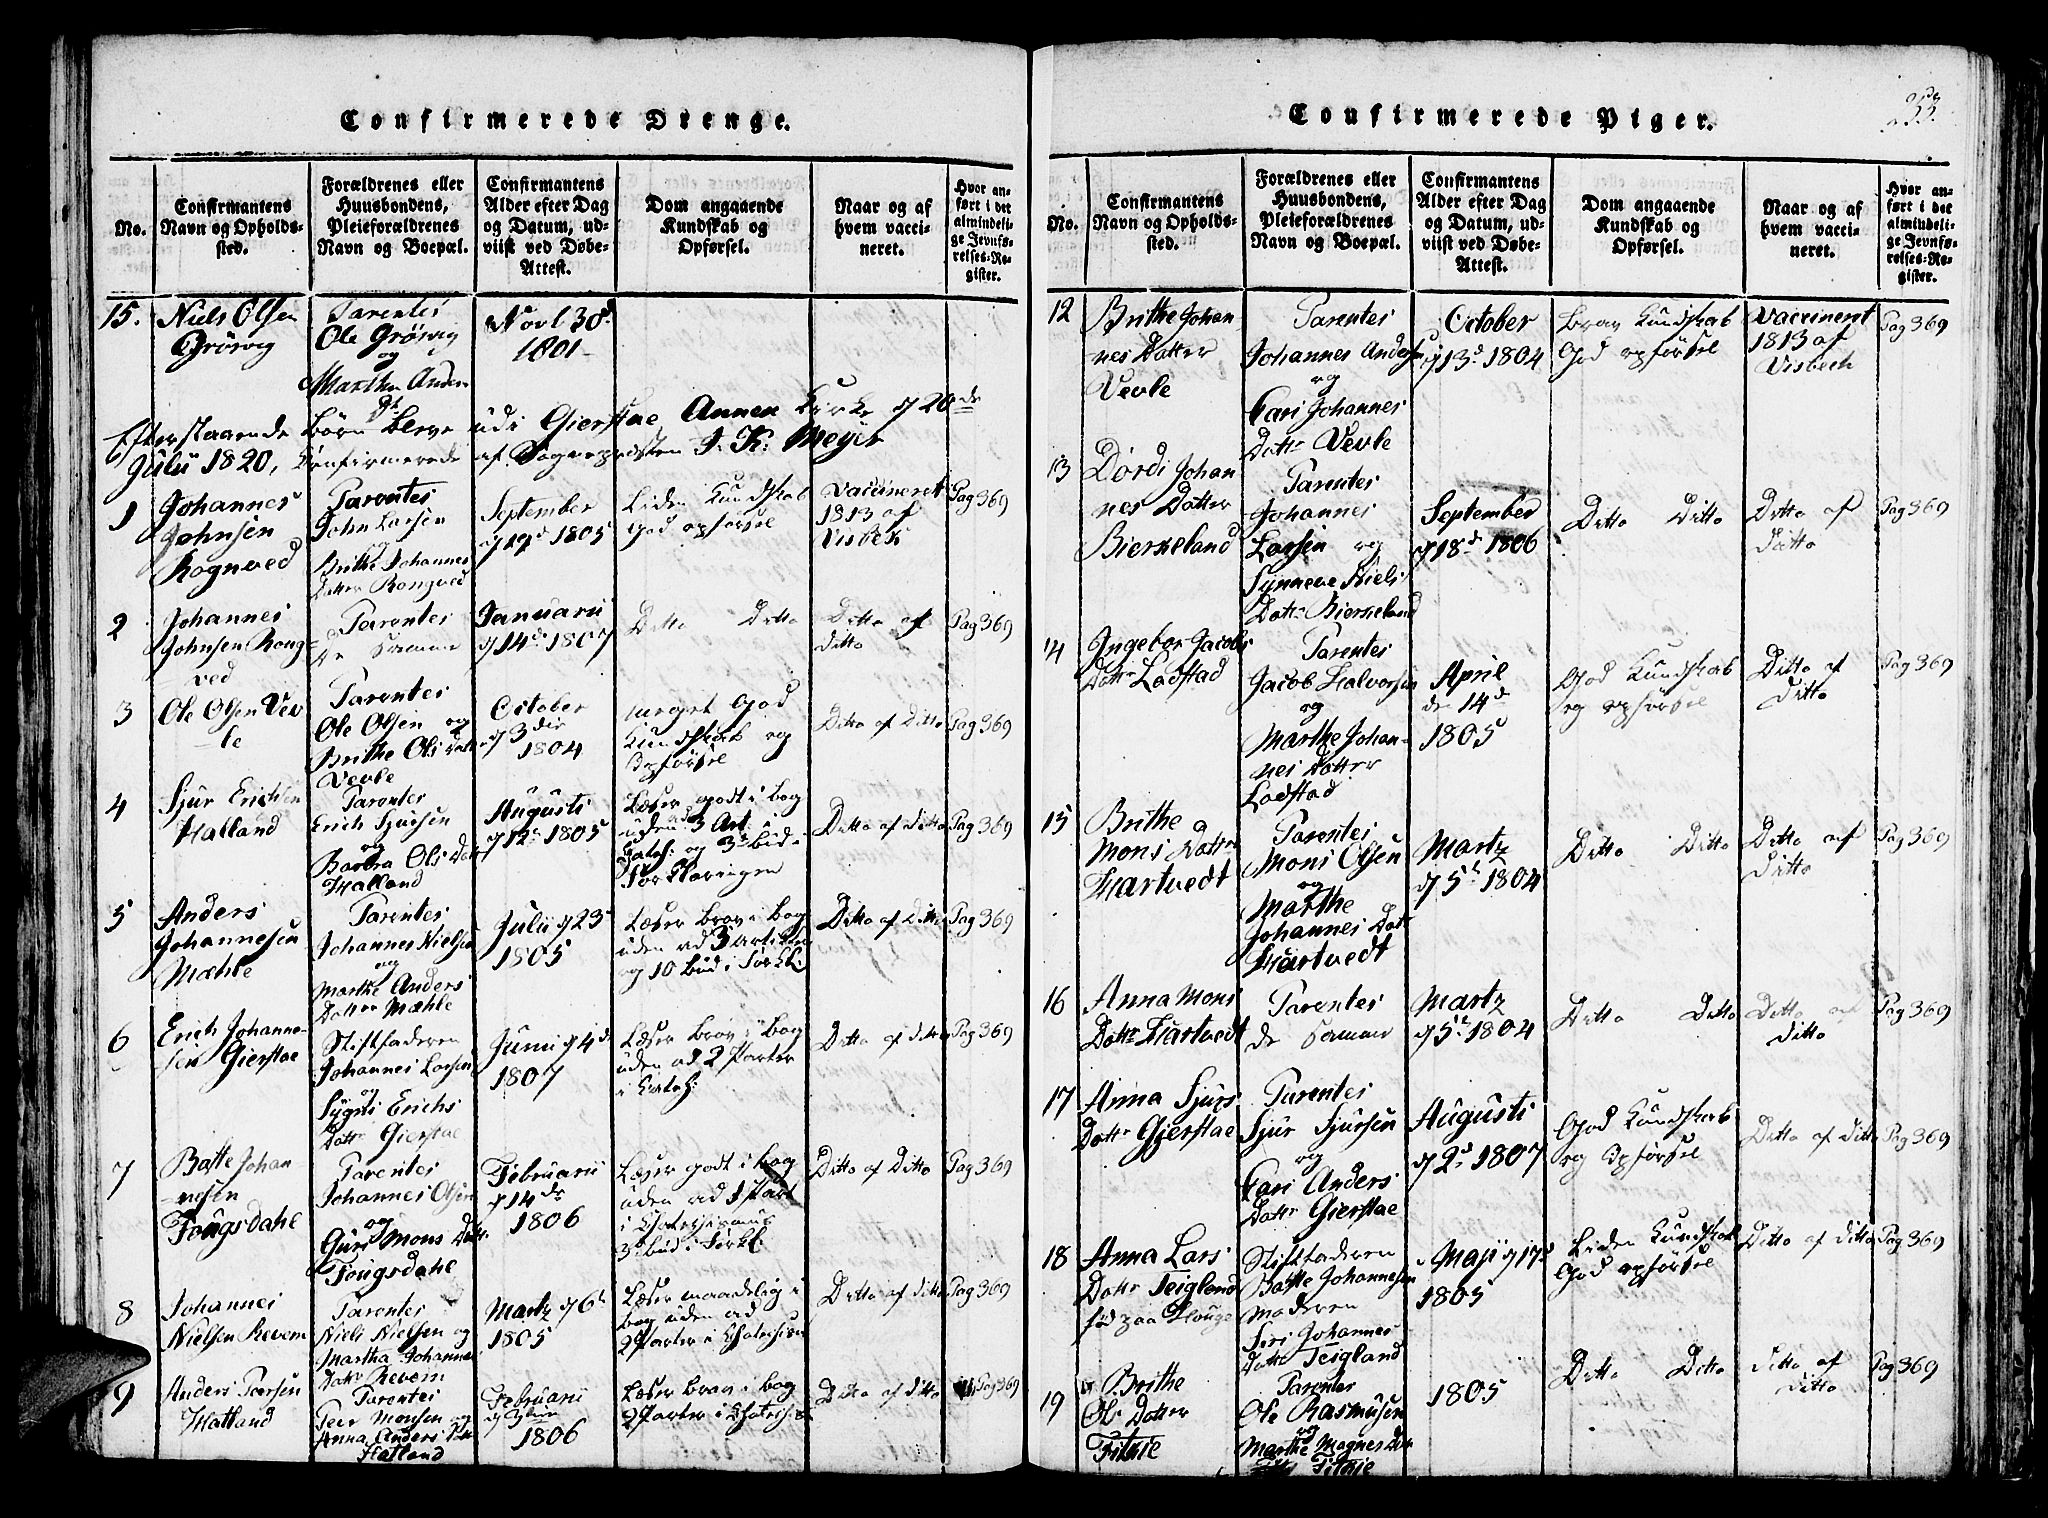 Confirmerede Drenge.
No.
Confirmantens
Navn og Opholds-
sted.
Forældrenes eller
Huusbondens,
Pleieforældrenes
Navn og Boepæl.
Confirmantens
Alder efter Dag
og Datum, ud-
viist ved Døbe-
Attest.
Dom angaaende
Kundskab og
Opførsel.
Naar og af
hvem vacci-
neret.
Hvor an-
ført i det
almindeli-
ge Jevnfø-
relses-Re-
gister.
15.
Niels Olsen
Grösvig
Parentes
Ole Grösvig
og
Martha Anders
Dtr
Novb 30.
1801
Efterstaaende Börn bleve udi Gierstae Annex Kirke d 20de
Julii 1820, Confirmerede af Sognepresten J. K. Meyer
1
Johannes
Johnsen
Rognved
Parentes
John Larsen
og
Brithe Johannes
Datter Rongved
September
d 19d 1805
Liden Kundskab
god opförsel
Vaccineret
1813 af
Visbek
Pag 369
2
Johannes
Johnsen Rong-
ved
Parentes
de samme
Januarii
d 14d 1807
Ditto Ditto
Ditto af
ditto
Pag 369
3
Ole Olsen Vev
le
Parentes
Ole Olsen og
Brithe Ols Datt
Vevle
October
d 3die
1804
meget god
Kundskab og
Opförsel
Ditto af Ditto
Pag 369
4
Sjur Erichsen
Hatland
Parentes
Erich Sjursen
og
Barbra Ols Datt
Hatland
Augusti
d 12t 1805
Læser godt i bog
uden ad 3 Art. i
Catech: og 3d bud i
Forklaringen
Ditto af ditto
Pag 369
5
Anders
Johannesen
Mæhle
Parentes
Johannes Nielsen
og
Marthe Anders
Datter Mæhle
Julii d 23
1805
Læser brav i bog
uden ad 3 artikler
og 10 bud i Forkl:
Ditto af Ditto
Pag 369
6
Erich Johanne-
sen Gierstae
Stiffaderen
Johannes Larsen
og
Sygni Erichs
Dattr Gierstae
Junii d 4d
1807
Læser brav i bog
uden ad 2 Parter
i Catech:
Ditto af ditto
Pag 369
7
Botte Johan-
nesen
Tougsdahl
Parentes
Johannes Olsen
og
Guri Mons Dattr
Tougsdahl
Februarii
d 14de
1806
Læser godt i bog
uden ad 1 Part
i Chatechismus
3d bud i Forkl
Ditto af Ditto
Pag 369
8
Johannes
Nielsen Revem
Parentes
Niels Nielsen og
Martha Johannes
Dattr Revem
Martz d 6t
1805
Læser maadelig i
bog uden ad
2 Parter i Chatechism
Ditto af ditto
Pag 369
9
Anders Peersen
Hatland
Parentes
Peer Monsen og
Anna Anders Datt
Hatland
Februarii
d 3die
1806
Læser brav i bog
2 Parter i Chatechism
Ditto af ditto
Pag 369
Confirmerede Piger.
253
No.
Confirmantens
Navn og Opholds-
sted.
Forældrenes eller
Huusbondens,
Pleieforældrenes
Navn og Boepæl.
Confirmantens
Alder efter Dag
og Datum, ud-
viist ved Døbe-
Attest.
Dom angaaende
Kundskab og
Opførsel.
Naar og af
hvem vacci-
neret.
Hvor an-
ført i det
almindeli-
ge Jevnfø-
relses-Re-
gister.
12
Brithe Johan
nes Datter
Vevle
Parentes
Johannes Andersen
og
Cari Johannes
Dattr Vevle
October
d 13d 1804
Brav Kundskab
God opförsel
Vaccineret
1813 af
Visbech
Pag 369
13
Dördi Johan
nes Datter
Bierkeland
Parentes
Johannes
Larsen og
Synneve Niels
Dattr Bierkeland
September
d 18d 1806
Ditto Ditto
Ditto af
ditto
Pag 369
14
Ingebor Jacobs
Dattr Ladstad
Parentes
Jacob Halvorsen
og
Marthe Johan-
nes Datter
Ladstad
April
de 14d
1805
God Kundskab
og opförsel
Ditto af
ditto
Pag 369
15
Brithe
Mons Datter
Hartvedt
Parentes
Mons Olsen
og
Marthe
Johannes Dat
Hartvedt
Martz
d 5t 1804
Ditto Ditto
Ditto af
ditto
Pag 369
16
Anna Mons
Dattr Hartvedt
Parentes
de samme
Martz
d 5t 1804
Ditto Ditto
Ditto af
ditto
Pag 369
17
Anna Sjurs
Dattr Gjerstae
Parentes
Sjur Sjursen
og
Cari Anders
Dattr Gierstae
Augusti
d 2d 1807
God Kundskab
og Opförsel
Ditto af ditto
Pag 369
18
Anna Lars
Dattr Teigland
föd paa Houge
Stiffaderen
Botte Johannesen
Moderen
Siri Johannes
Dattr Teigland
Maji d 17d
1805
Liden Kundskab
God opförsel
Ditto af ditto
Pag 369
19
Brithe
Ols Datter
Titsie
Parentes
Ole Rasmusen
og
Marthe Magnes Dat
Titsie
1805
Ditto Ditto
ditto af
ditto
Pag 369